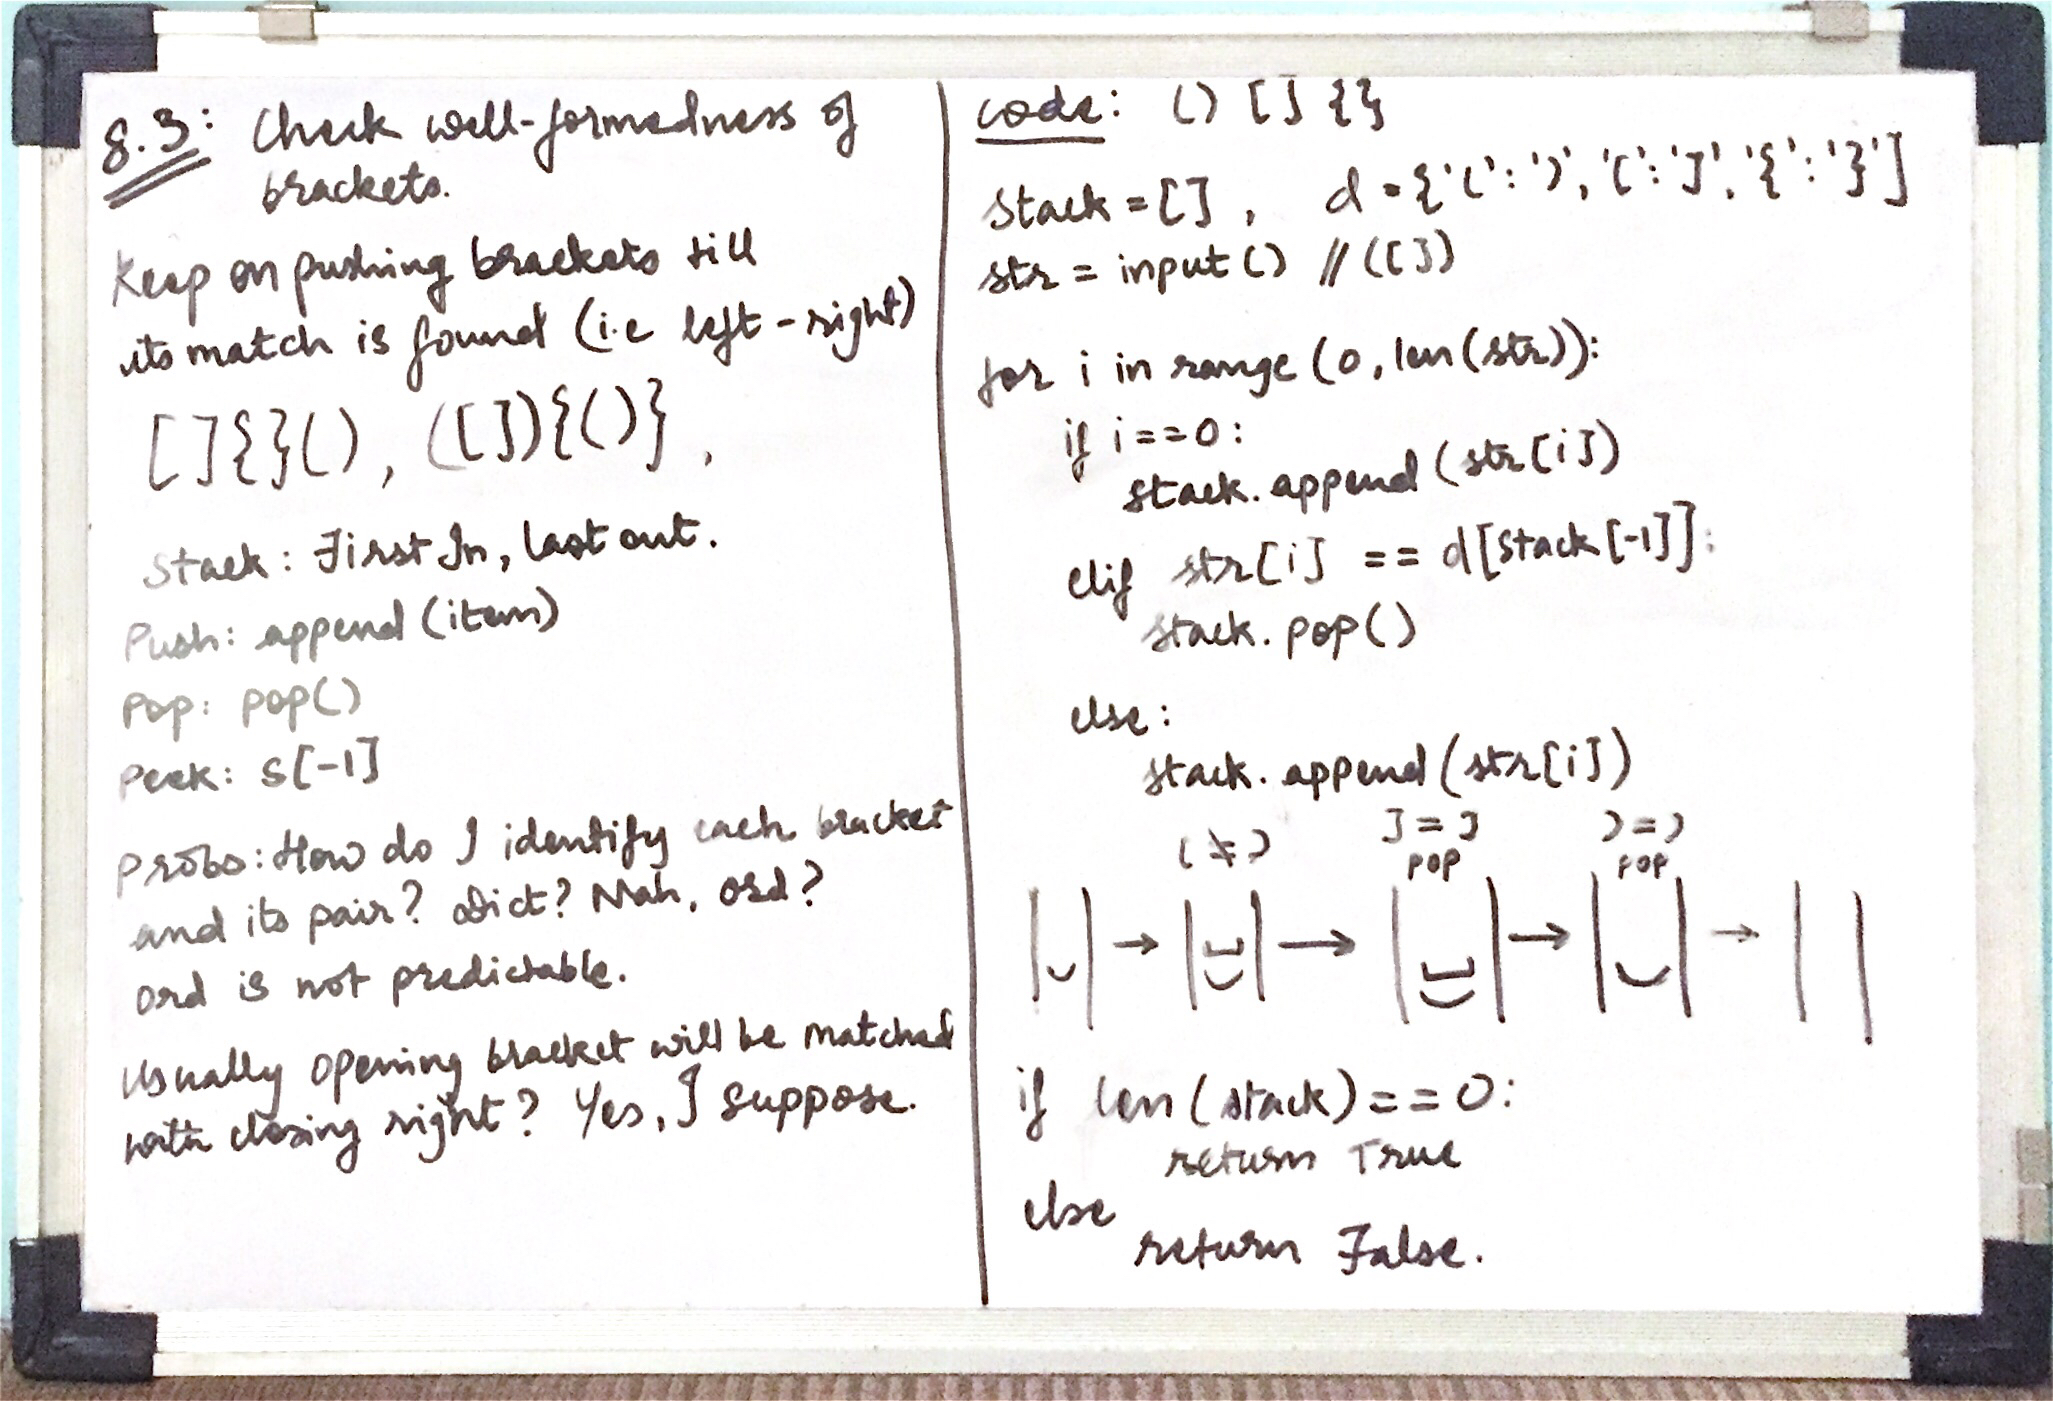 8.3: Check well-formedness of
brackets.
Keep on pushing brackets till
its match is found (i.e left-right)
[]{}(), ([]){()},
Stack: First In, last out.
Push: append(item)
Pop: pop()
Peek: s[-1]
Probs: How do I identify each bracket
and its pair? Dict? Nah, ord?
ord is not predictable.
Usually opening bracket will be matched
with closing right? Yes, I suppose.
code: () [] {}
stack = [], d = {'(':')', '[':']', '{':'}']
str = input() // ([])
for i in range (0, len(str)):
if i==0:
stack.append(str[i])
elif str[i] == d[stack[-1]]:
stack.pop()
else:
stack.append(str[i])
( ≠ ) ] = ] ) = )
pop pop
→ → → →
if len(stack)==0:
return True
else
return False.